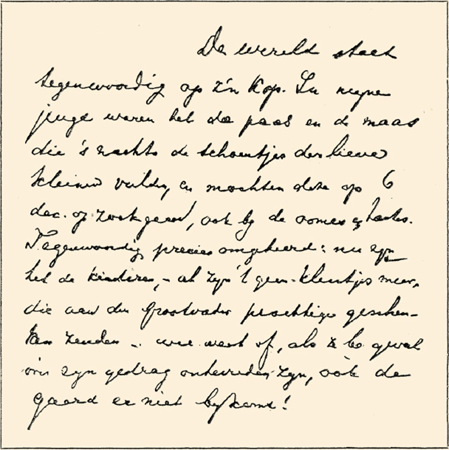 De wereld staat
tegenwoordig op z'n kop. In mijne
jeugd waren het de paas en de maas
die 's nachts de schoentjes der lieve
kleinen vulden, en mochten deze op 6
dec. op zoek gaan, ook bij de oomes &
Tegenwoordig precies omgekeerd: nu zijn
het de kinderen, - al zijn 't geen kleintjes meer,
die aan den Grootvader prachtige geschen-
ken zenden - wie weet of, als ze bo geval
over zijn gedrag ontevreden zijn, ook de
gaard er niet bijkomt!